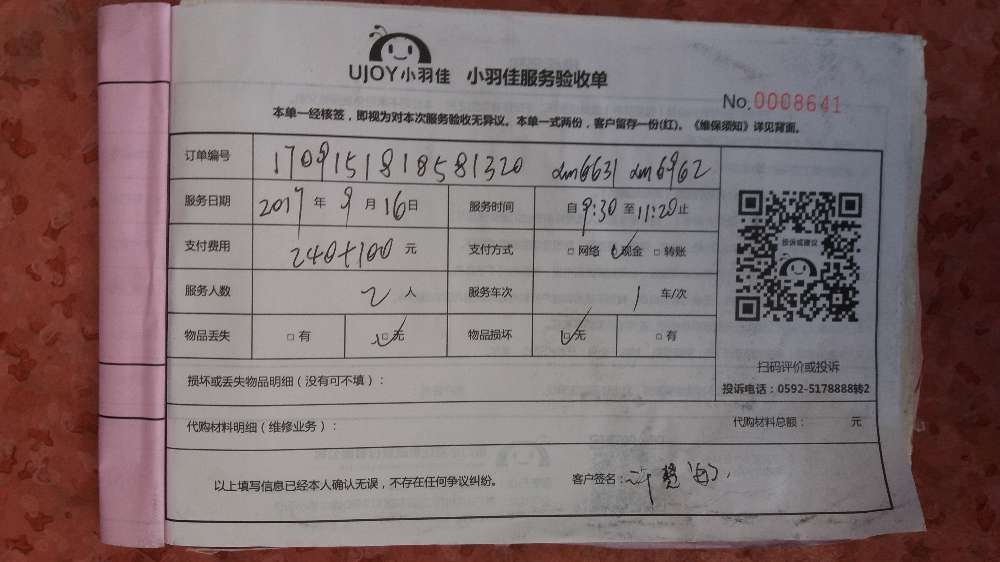 UJOY小羽佳 小羽佳服务验收单
No.0008641
本单一经核签，即视为对本次服务验收无异议。本单一式两份，客户留存一份(红)。《维保须知》详见背面。
订单编号 1709151818581320 dm6631 dm6962
服务日期 2017年9月16日 服务时间 自9:30至11:20止
支付费用 240+100元 支付方式 □网络 ☑现金 □转账
服务人数 2人 服务车次 1车/次
物品丢失 □有 ☑无 物品损坏 ☑无 □有
投诉或建议
扫码评价或投诉
投诉电话：0592-5178888转2
损坏或丢失物品明细（没有可不填）：
代购材料明细（维修业务）： 代购材料总额： 元
以上填写信息已经本人确认无误，不存在任何争议纠纷。 客户签名：